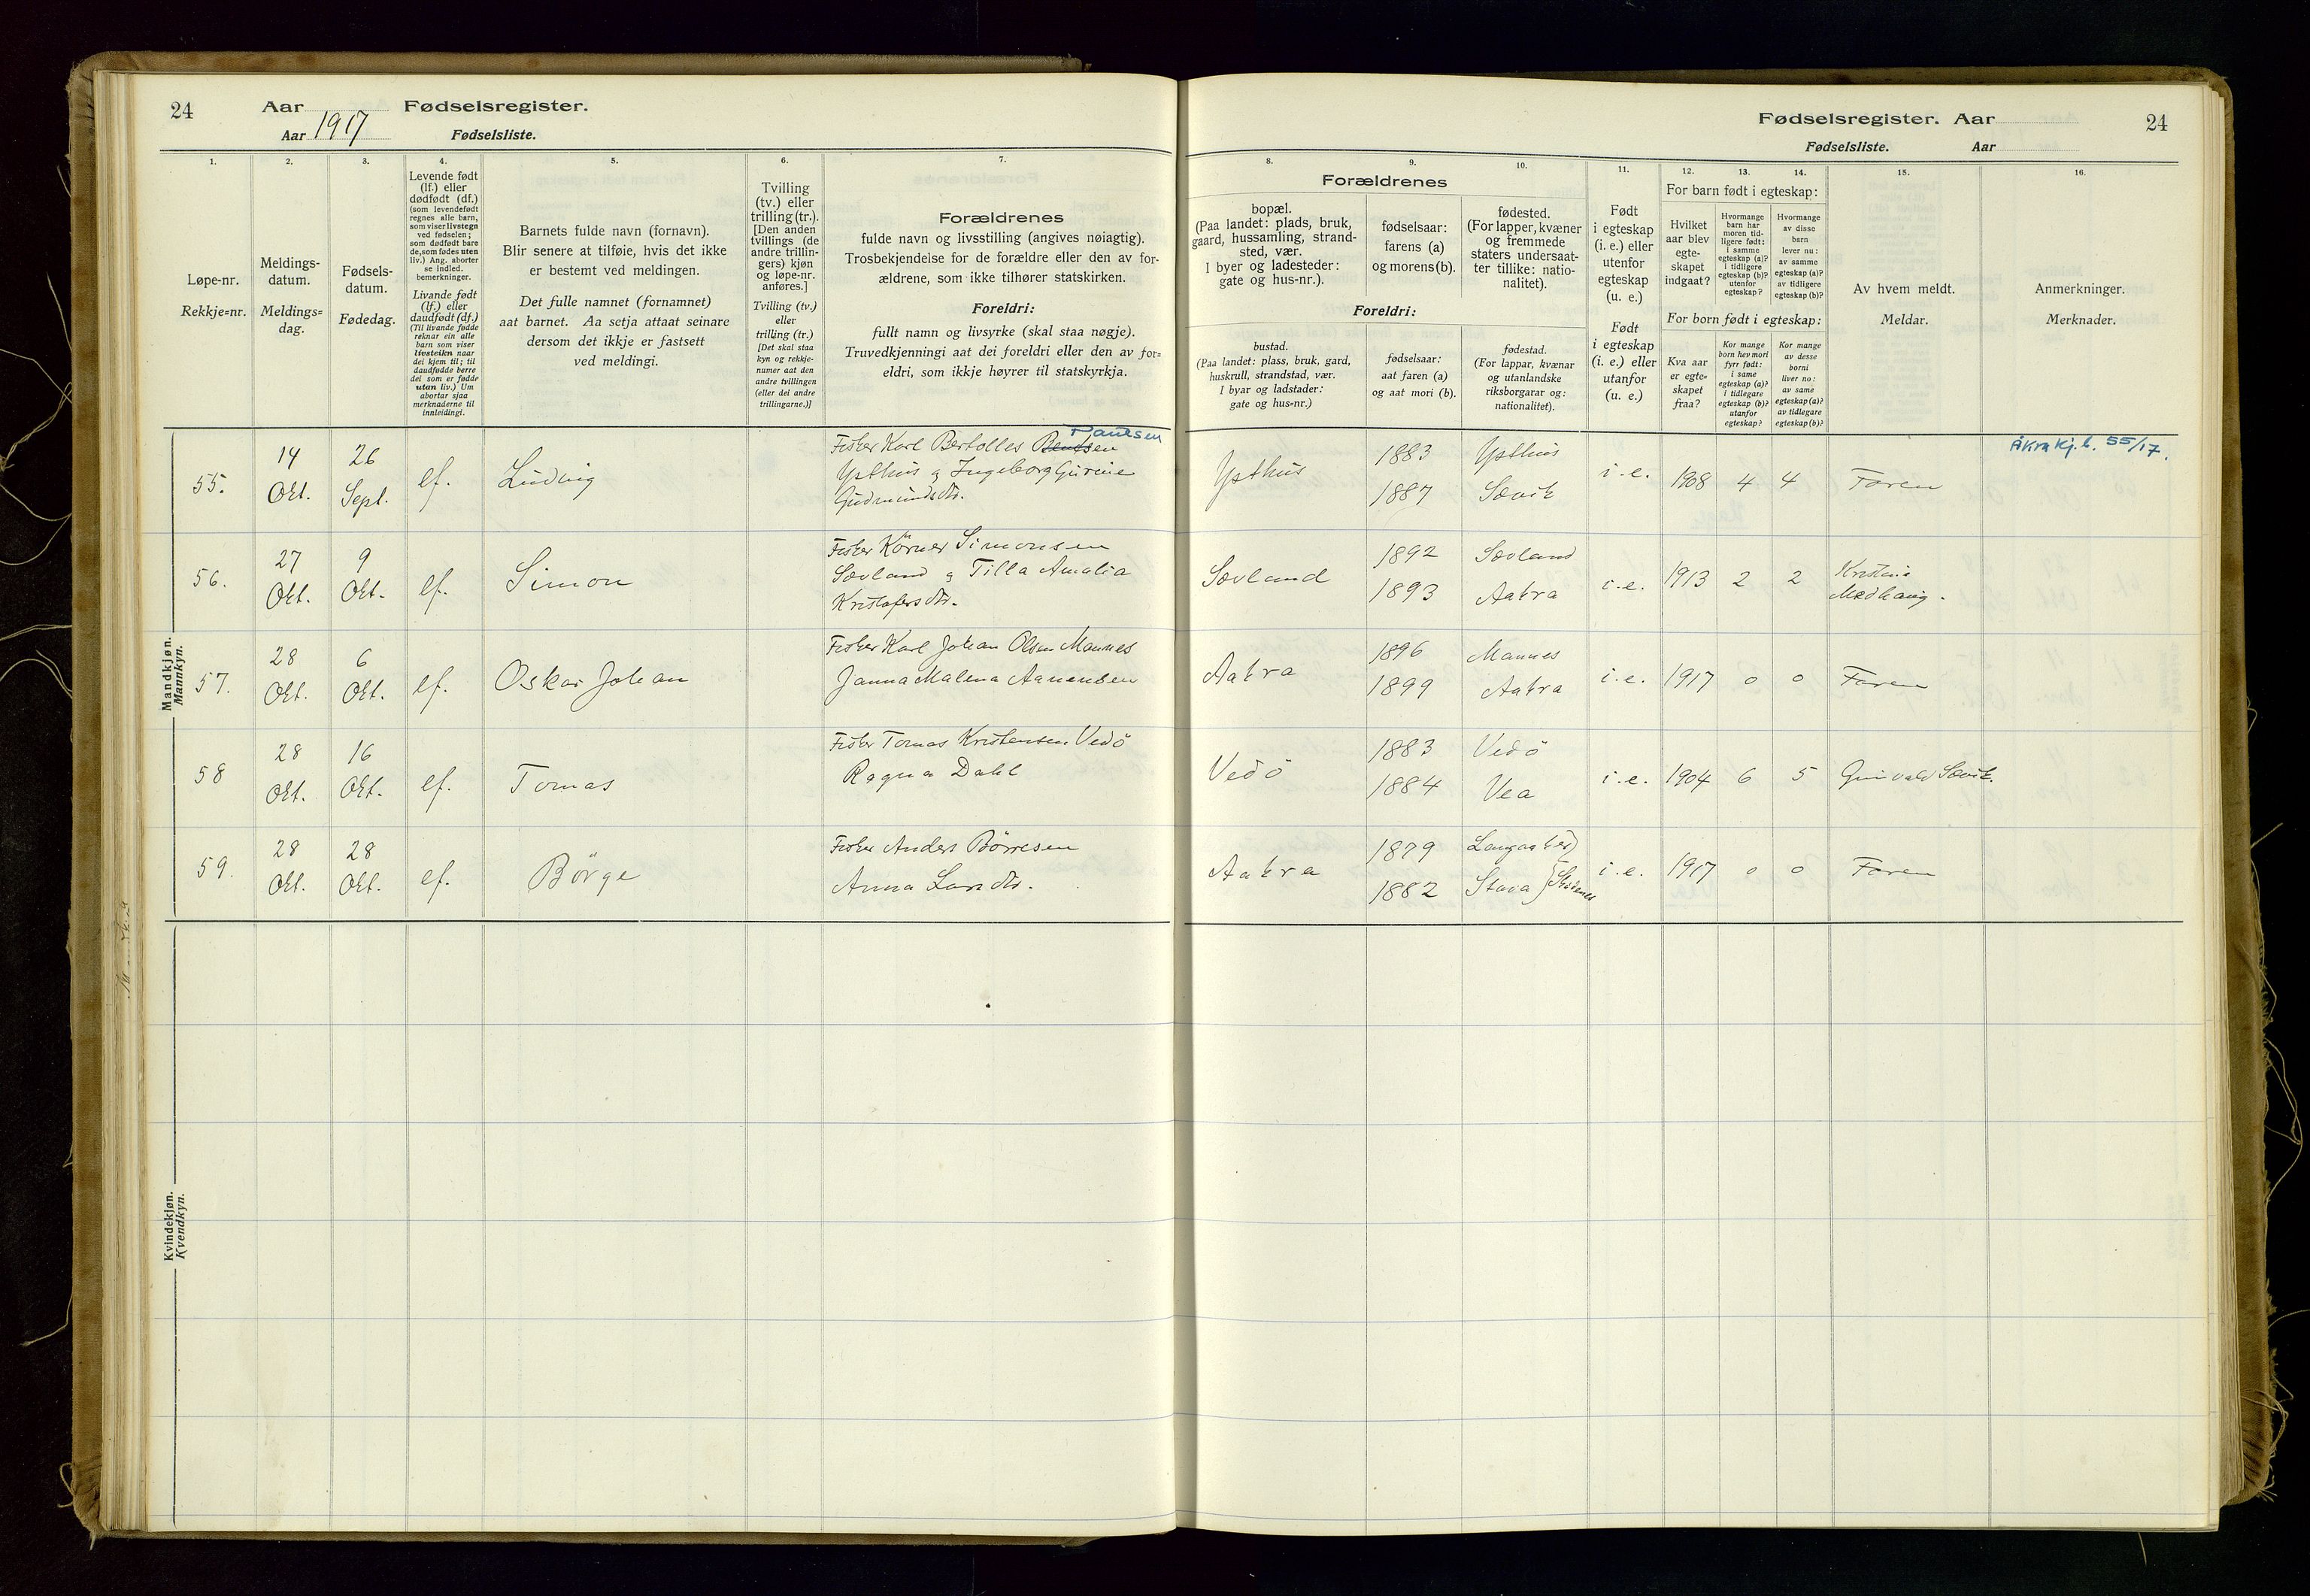 24
Aar
Fødselsregister.
Aar 1917
Fødselsliste.
Fødselsregister. Aar
24
Fødselsliste.
Aar
1.
2.
3.
4.
5.
6.
7.
8.
9.
10.
11.
12.
13.
14.
15.
16.
Løpe-nr.
Rekkje-nr.
Meldings-
datum.
Meldings-
dag.
Fødsels-
datum.
Fødedag.
Levende født
(lf.) eller
dødfødt (df.)
(som levendefødt
regnes alle barn,
som viser livstegn
ved fødselen;
som dødfødt bare
de, som fødes uten
liv.) Ang. aborter
se indled.
bemerkninger.
Livande født
(lf.) eller
daudfødt (df.)
(Til livande fødde
reknar ein alle
barn som viser
livsteikn naar
dei kjem til; til
daudfødde berre
dei som er fødde
utan liv.) Um
abortar sjaa
merknaderne til
innleidingi.
Barnets fulde navn (fornavn).
Blir senere at tilføie, hvis det ikke
er bestemt ved meldingen.
Det fulle namnet (fornamnet)
aat barnet. Aa setja attaat seinare
dersom det ikkje er fastsett
ved meldingi.
Tvilling
(tv.) eller
trilling (tr.).
[Den anden
tvillings (de
andre trillin-
gers) kjøn
og løpe-nr.
anføres.]
Tvilling (tv.)
eller
trilling (tr.)
[Det skal staa
kyn og rekkje-
numer aat den
andre tvillingen
(eller dei andre
trillingarne.)]
Forældrenes
fulde navn og livsstilling (angives nøiagtig).
Trosbekjendelse for de forældre eller den av for-
ældrene, som ikke tilhører statskirken.
Foreldri:
fullt namn og livsyrke (skal staa nøgje).
Truvedkjenningi aat dei foreldri eller den av for-
eldri, som ikkje høyrer til statskyrkja.
Forældrenes
bopæl.
(Paa landet: plads, bruk,
gaard, hussamling, strand-
sted, vær.
I byer og ladesteder:
gate og hus-nr.).
fødselsaar:
farens (a)
og morens (b).
fødested.
(For lapper, kvæner
og fremmede
staters undersaat-
ter tillike: natio-
nalitet).
Foreldri:
bustad.
(Paa landet: plass, bruk, gard,
huskrull, strandstad, vær.
I byar og ladstader:
gate og hus-nr.)
fødselsaar:
aat faren (a)
og aat mori (b).
fødestad.
(For lappar, kvænar
og utanlandske
riksborgarar og:
nationalitet).
Født
i egteskap
(i. e.) eller
utenfor
egteskap
(u. e.)
Født
i egteskap
(i. e.) eller
utanfor
(u. e.)
For barn født i egteskap:
Hvilket
aar blev
egte-
skapet
indgaat?
Hvormange
barn har
moren tid-
ligere født:
i samme
egteskap (a)?
i tidligere
egteskap (b)?
utenfor
egteskap?
Hvormange
av disse
barn
lever nu:
av samme
egteskap (a)?
av tidligere
egteskap (b)?
For born født i egteskap:
Kva aar
er egte-
skapet
fraa?
Kor mange
born hev mori
fyrr født:
i same
egteskap (a)?
i tidlegare
egteskap (b)?
utanfor
egteskap?
Kor mange
av desse
borni
liver no:
av same
egteskap (a)?
av tidlegare
egteskap (b)?
Av hvem meldt.
Meldar.
Anmerkninger.
Merknader.
Mandkjøn.
Mannkyn.
55.
14
Okt.
26
Sept.
lf.
Ludvig
Paulsen
Fisker Karl Bertolles Bentsen
Ysthus og Ingeborg Gurine
Gudmundsdtr.
Ysthus
1883
1887
Ysthus
Sævik
i. e.
1908
4
4
Faren
Åkra kj.b. 55/17.
56.
27
Okt.
9
Okt.
lf.
Simon
Fisker Körner Simonsen
Sævland og Tilla Amalia
Kristofersdtr.
Sævland
1892
1893
Sævland
Aakra
i. e.
1913
2
2
Kristine
Medhaug.
57.
28
Okt.
6
Okt.
lf.
Oskar Johan
Fisker Karl Johan Olsen Mannes
Janna Malena Aanensen
Aakra
1896
1899
Mannes
Aakra
i. e.
1917
0
0
Faren
58
28
Okt.
16
Okt.
lf.
Tomas
Fisker Tomas Kristensen Vedö
Ragna Dahl
Vedö
1883
1884
Vedö
Vea
i. e.
1904
6
5
Gunvald Sævik.
59.
28
Okt.
28
Okt.
lf.
Börge
Fisker Anders Börresen
Anna Larsdtr.
Aakra
1879
1882
Langaaker
Stava
i. e.
1917
0
0
Faren
Kvindekjøn.
Kvendkyn.